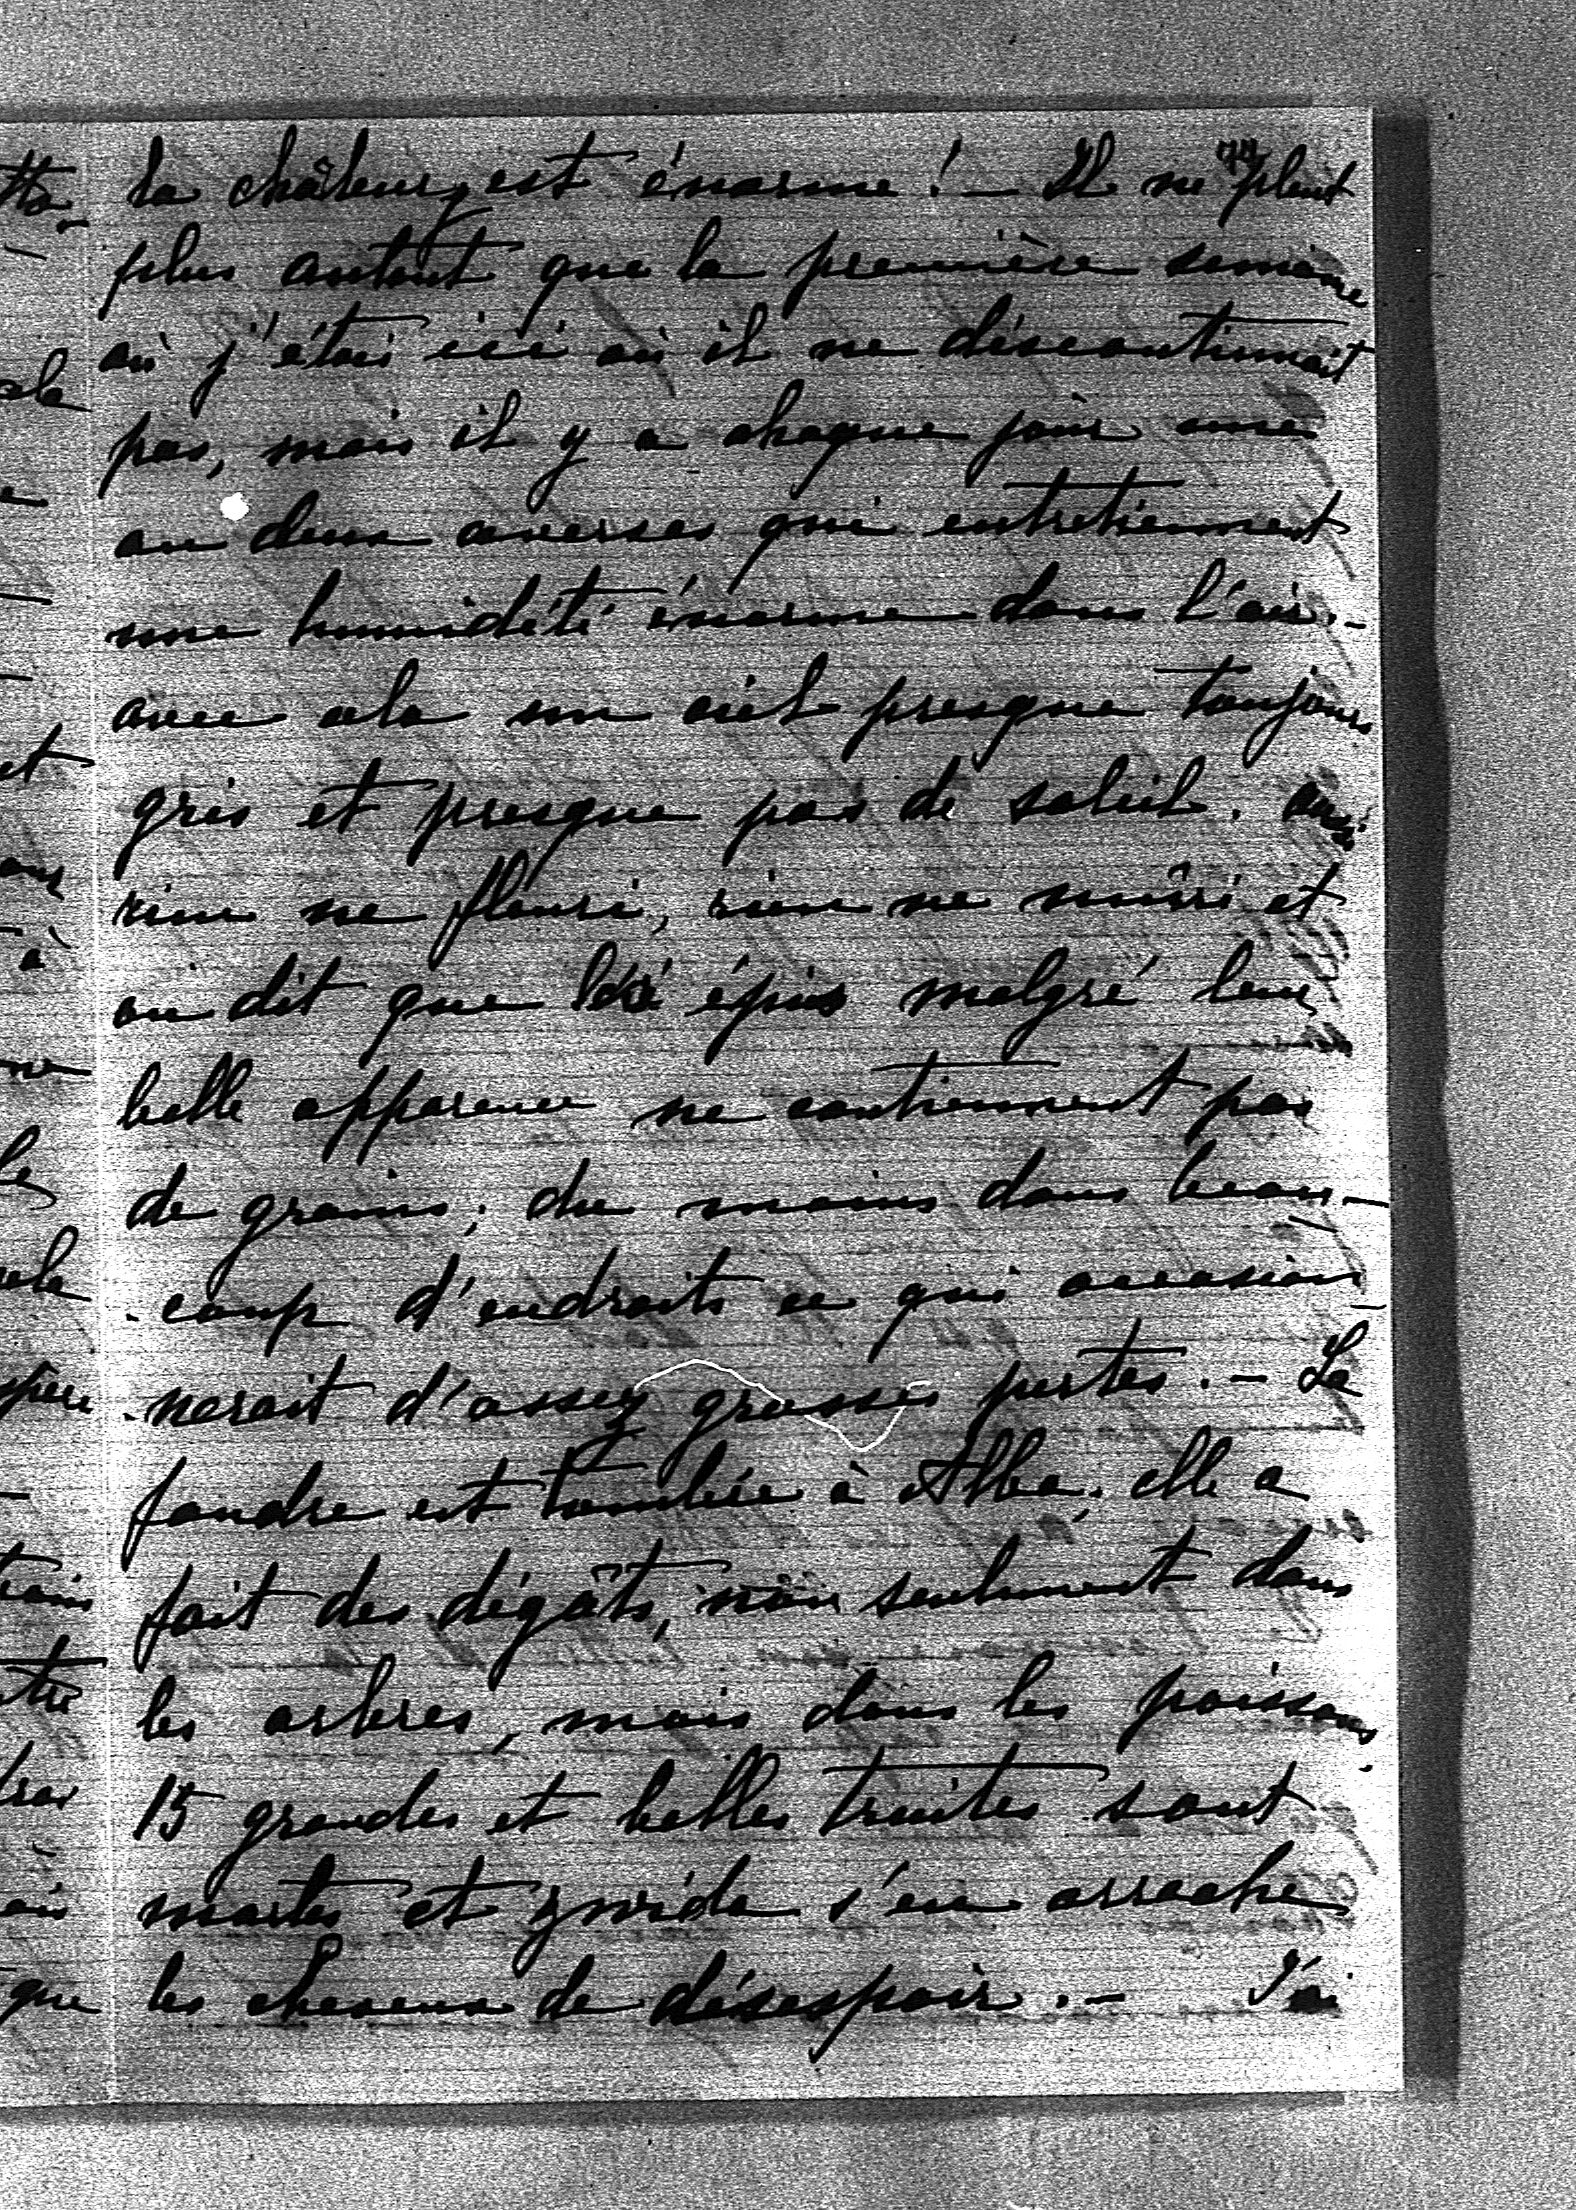 74
la châleur y est énorme ! — Il ne pleut
plus autant que la première semaine
où j'étais ici où il ne discontinuait
pas, mais il y a chaque jour une
ou deux averses qui entretiennent
une humidité énorme dans l'air. -
avec cela un ciel presque toujours
gris et presque pas de soleil. aussi
rien ne fleuri, rien ne mûri et
on dit que les épis malgré leur
belle apparence ne contiennent pas
de grains, du moins dans beau-
coup d'endroits ce qui occasion-
nerait d'assez grosses pertes. - La
foudre est tombée à Alba, elle a
fait des dégâts, non seulement dans
les arbres, mais dans les poissons.
15 grandes et belles truites sont
mortes et s'en arrache
les cheveux de désespoir. - J'ai